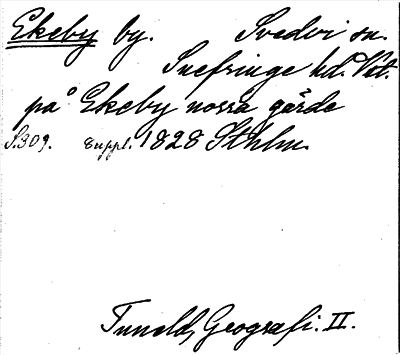 Ekeby by. Svedvi sn.
Snefringe hd. Vstl.
på Ekeby norra gärde
S.309. Suppl. 1828 Sthlm.
Tuneld, Geografi. II.